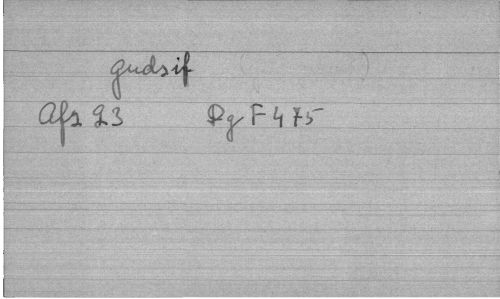 gudsif
Afs 93 Rg F 475